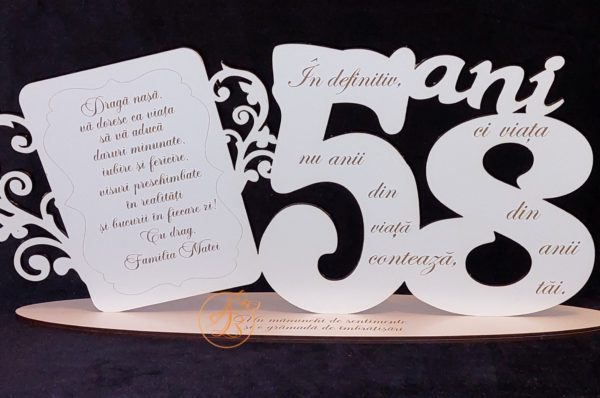 Dragă nașă,
vă doresc ca viața
să vă aducă
daruri minunate,
iubire și fericire,
visuri preschimbate
în realități
și bucurii în fiecare zi!
Cu drag,
Familia Matei
58 ani
În definitiv,
nu anii
din
viață
contează,
ci viața
din
anii
tăi.
Un mănunchi de sentimente
și o grămadă de îmbrățișări